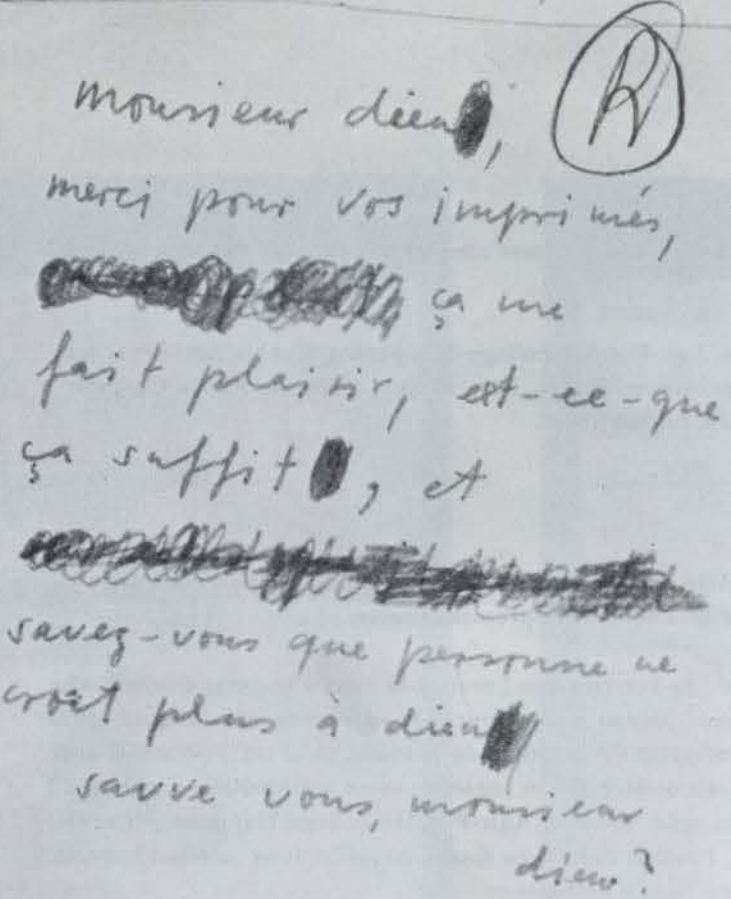 monsieur dieu,
R
merci pour vos imprimés,
ça me
fait plaisir, est-ce-que
ça suffit, et
savez-vous que personne ne
croit plus à dieu
savve vous, monsieur
dieu?